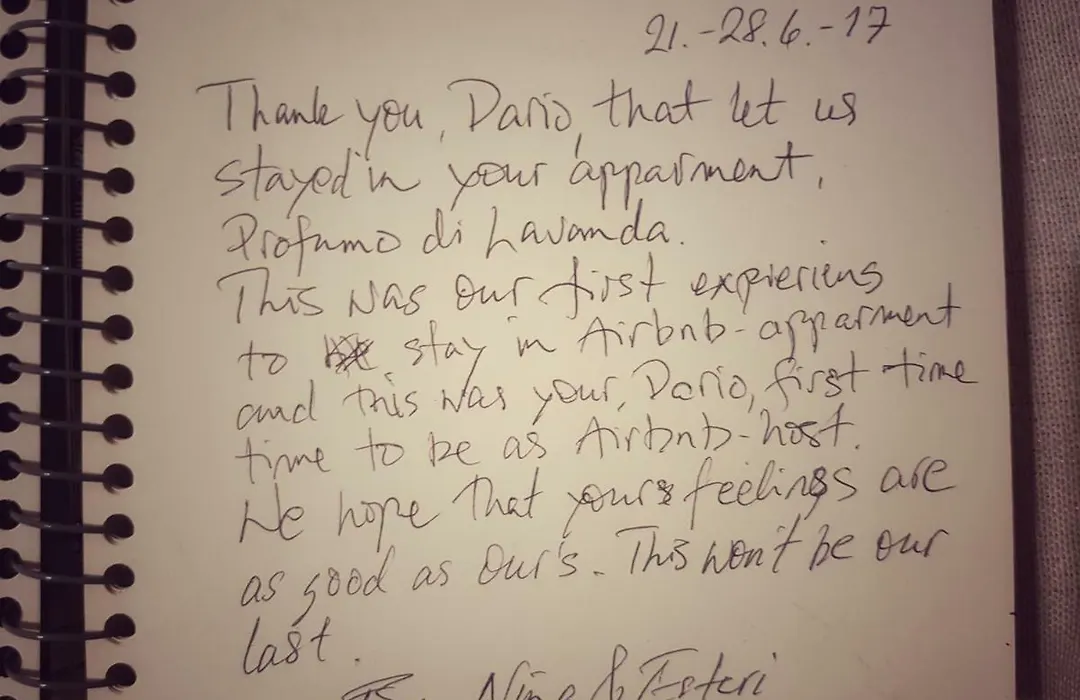 21.-28.6.-17
Thank you, Dario, that let us
stayed in your apparment,
Profumo di Lavanda.
This was our first expieriens
to stay in Airbnb-apparment
and this was your, Dario, first time
time to be as Airbnb-host.
We hope that yours feelings are
as good as Our's. This won't be our
last.
& Esteri